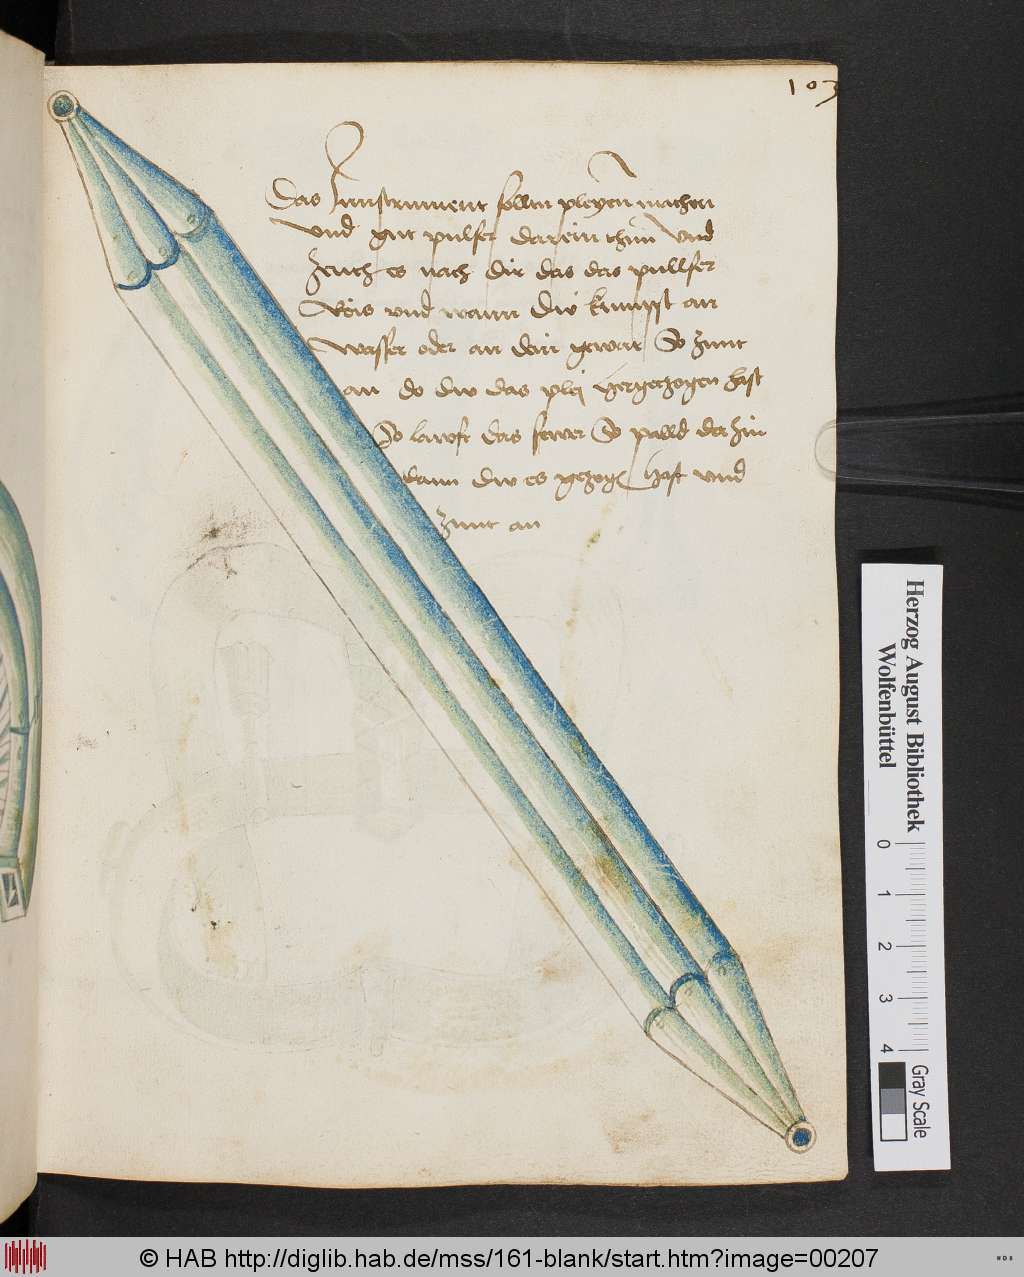 103
Das Innstrument solltu pleyen machen
Vnd gut pulfer darein thun Vnd
zeuch es nach dir das das pullfer
und wann diw kumpst an
Wasser oder an dein gewar So zunt
an do diw das plej hergezogen hast
So lawft das fewer So palld da hin
wann diw es gezogen hast vnd
zunt an
Herzog August Bibliothek
Wolfenbüttel
0 1 2 3 4
Gray Scale
© HAB http://diglib.hab.de/mss/161-blank/start.htm?image=00207